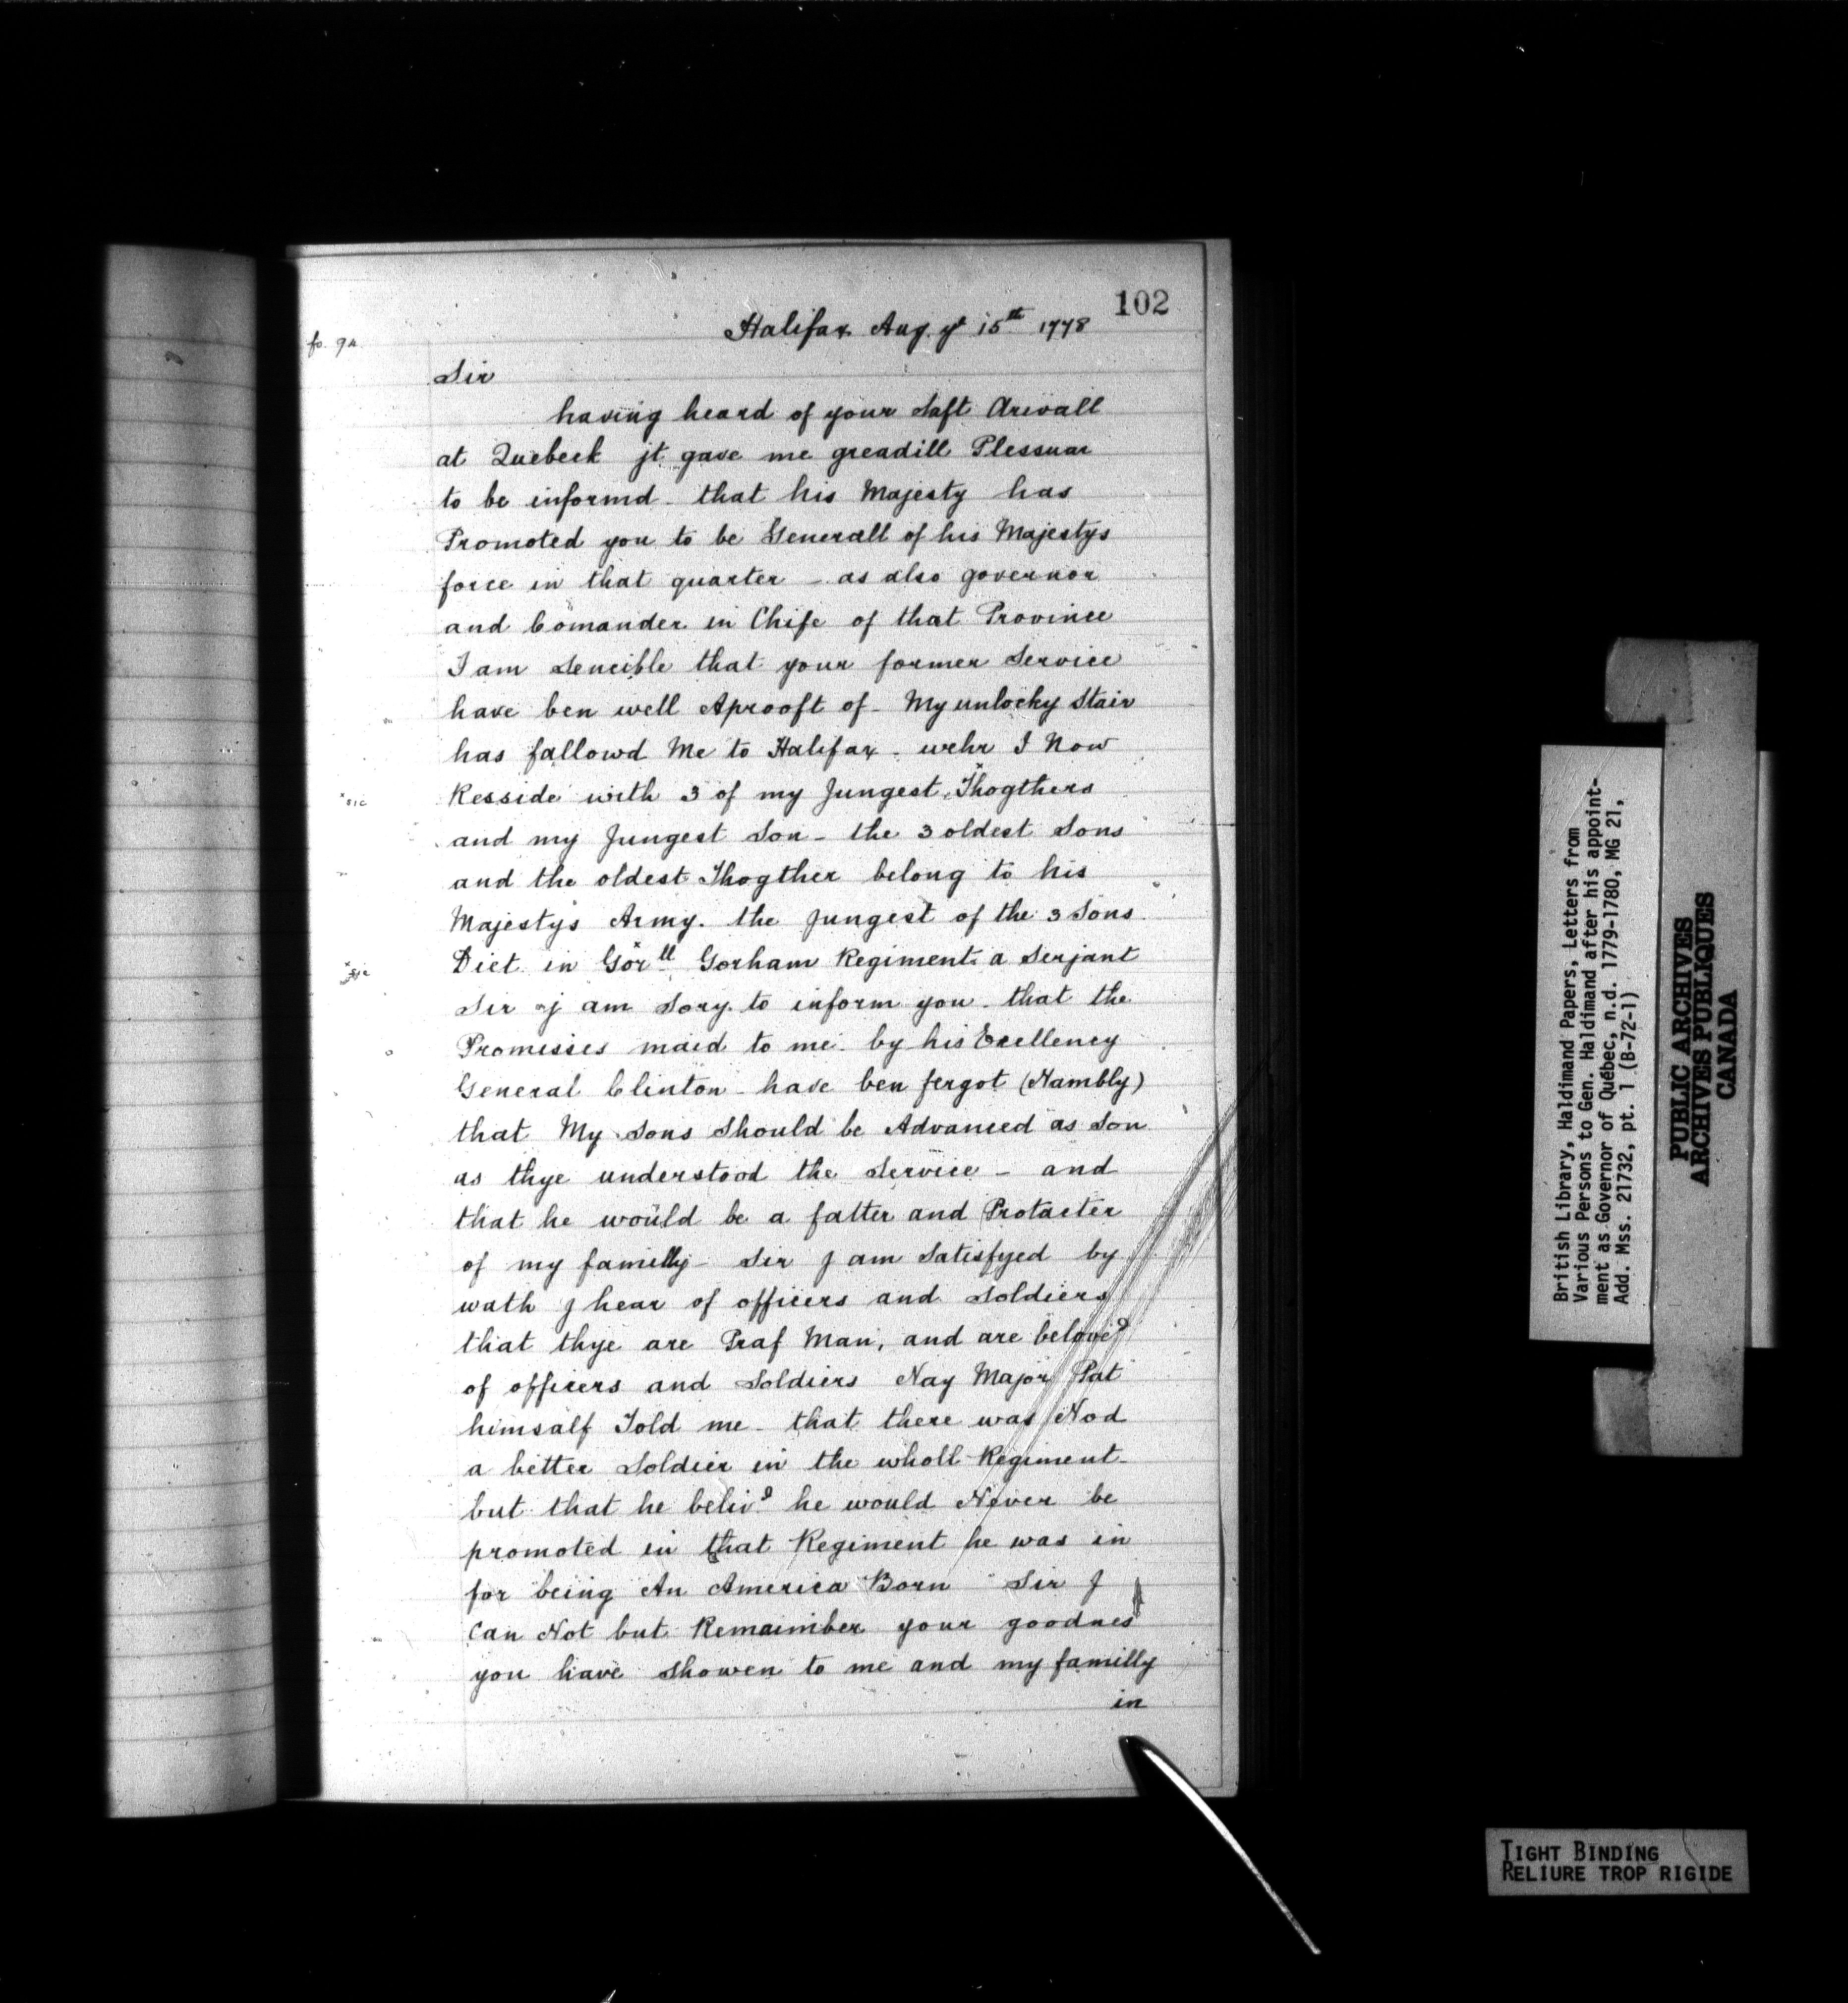 102
Halifax Aug. yt 15th 1778
fo. 92.
Sir
having heard of your Saft Arivall
at Quebeck jt gave me greadill Plessuar
to be informd that his Majesty has
Promoted you to be Generall of his Majestys
force in that quarter - as also governor
and Comander in Chife of that Province
I am Sencible that your former Service
have ben well Aprooft of - My unlocky Stair
has fallowd Me to Halifax - wehr I Now
x sic
Resside with 3 of my Jungest Thogthers
and my Jungest Son - the 3 oldest Sons
and the oldest Thogther belong to his
Majestys Army. the Jungest of the 3 Sons
x sic
Diet in Gorll Gorham Regiment a Serjant
Sir j am Sory to inform you that the
Promisses maid to me by his Excellency
General Clinton - have ben fergot (Nambly)
that My Sons Should be Advanced as Son
as thye understood the Service - and
that he would be a fatter and Protacter
of my familly - Sir J am Satisfyed by
wath J hear of officers and Soldiers
that thye are Praf Man, and are beloved
of officers and Soldiers Nay Major Pat
himsalf Told me - that there was Nod
a better Soldier in the wholl Regiment -
but that he belivd he would Never be
promoted in that Regiment he was in
for being An America Born Sir J
Can Not but Remaimber your goodnes
you have Showen to me and my familly
in
British Library, Haldimand Papers, Letters from
Various Persons to Gen. Haldimand after his appoint-
ment as Governor of Québec, n.d. 1779-1780, MG 21,
Add. Mss. 21732, pt. 1 (B-72-1)
PUBLIC ARCHIVES
ARCHIVES PUBLIQUES
CANADA
TIGHT BINDING
RELIURE TROP RIGIDE